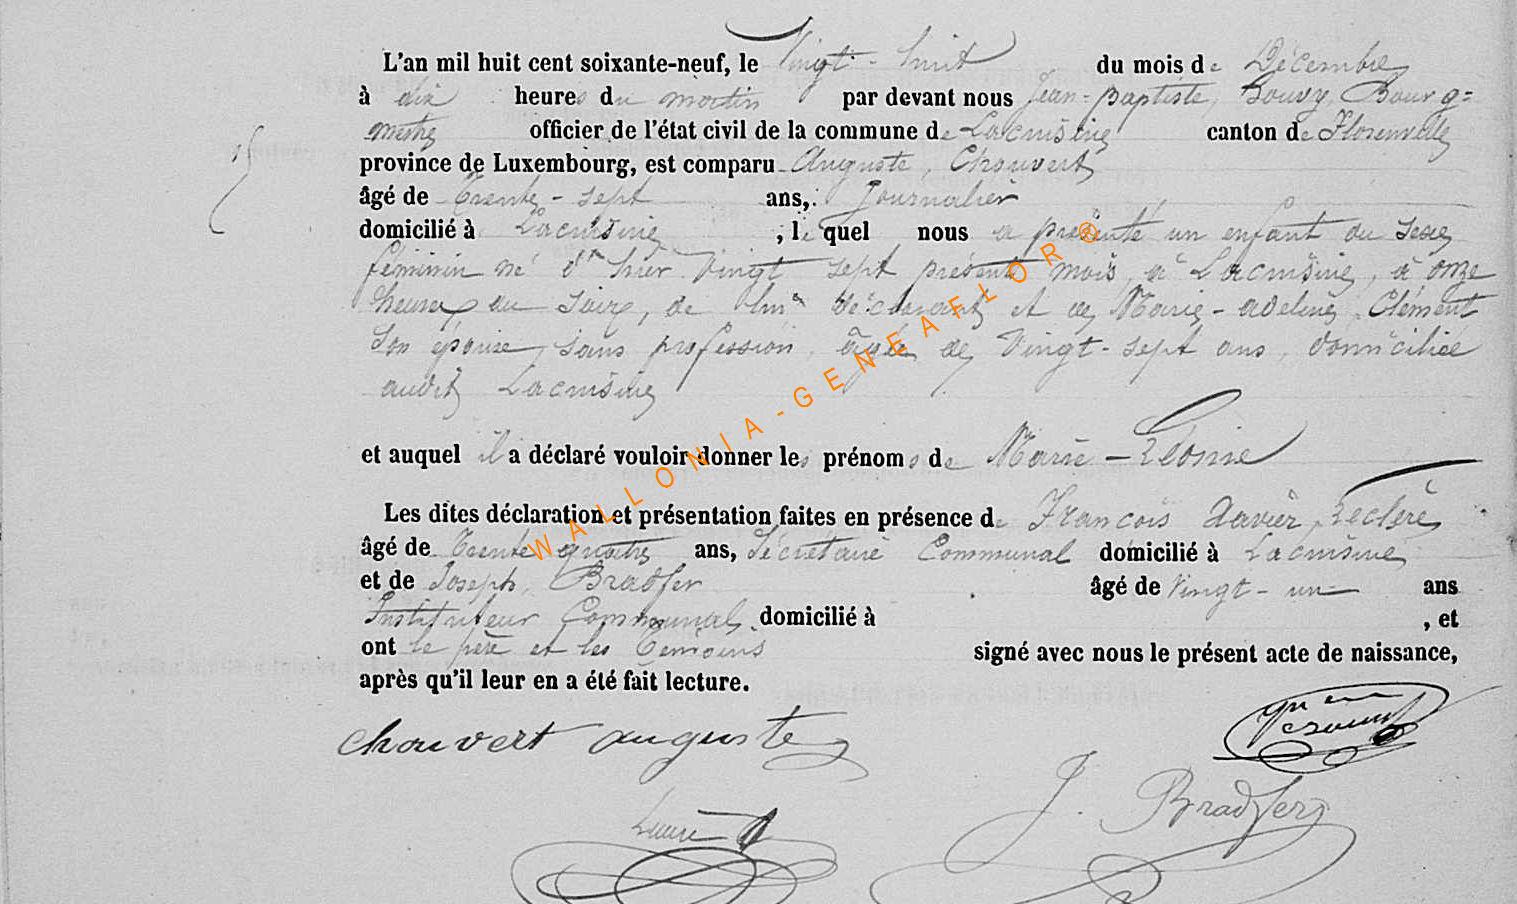 L'an mil huit cent soixante-neuf, le Vingt-huit du mois de Décembre
à dix heures du matin par devant nous Jean-Baptiste, Bouvy, Bourg=
mestre officier de l'état civil de la commune de Lacuisine canton de Florenville
province de Luxembourg, est comparu Auguste, Chouvert
âgé de Trente-sept ans, Journalier
domicilié à Lacuisine, lequel nous a présenté un enfant du sexe
féminin né d'hier Vingt sept présent mois, à Lacuisine, à onze
heures du soir, de lui déclarant et de Marie-adeline, Clément
son épouse, sans profession, âgée de Vingt-sept ans, domiciliée
audit Lacuisine
et auquel il a déclaré vouloir donner les prénoms de Marie-Léonie
Les dites déclaration et présentation faites en présence de François Xavier, Leclère
âgé de Trente quatre ans, Secrétaire Communal domicilié à Lacuisine
et de Joseph, Bradfer âgé de Vingt-un ans
Instituteur Communal, domicilié à , et
ont le père et les témoins signé avec nous le présent acte de naissance,
après qu'il leur en a été fait lecture.
chouvert auguste
J. Bradfer
WALLONIA-GENEAFLOR®